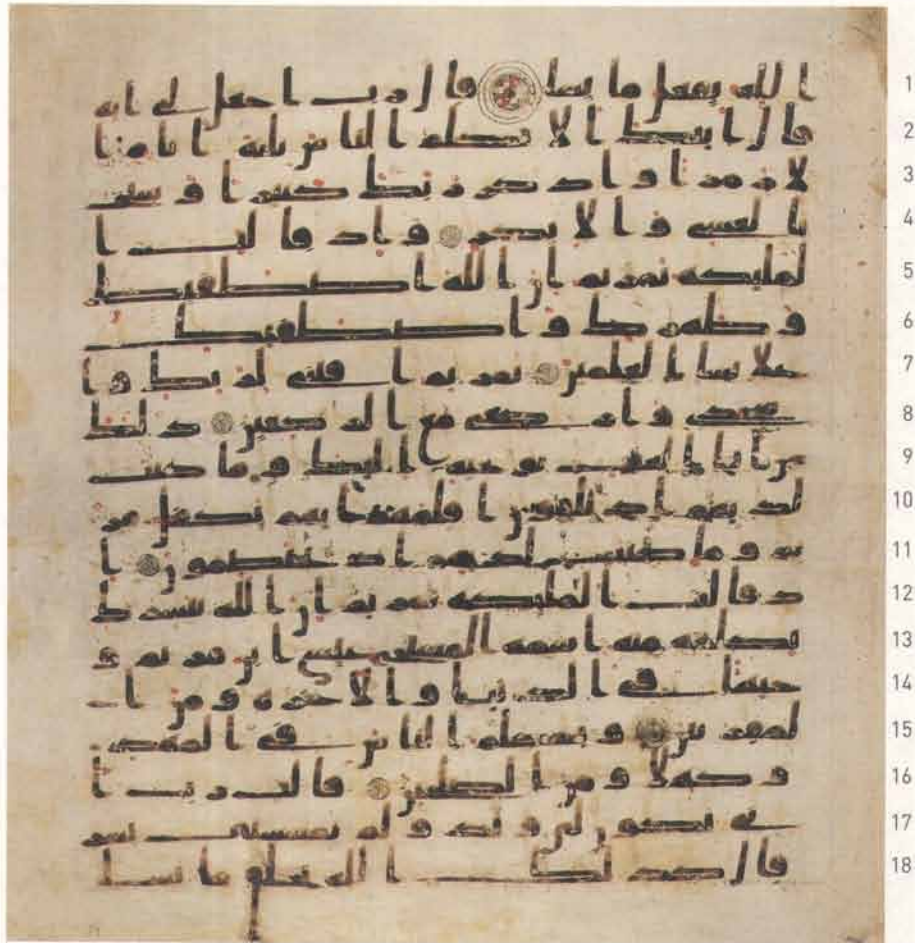 الله يفعل ما يشا قال رب اجعل لي ايه 1
قال ايتك الا تكلم الناس ثلثة ايام ا 2
لا رمزا واذكر ربك كثيرا وسبح 3
بالعشي والابكر واذ قالت ا 4
لمليكه يمريم ان الله اصطفيك 5
وطهرك واصطفيك 6
على نسا العلمين يمريم اقنتي لربك وا 7
سجدي واركعي مع الركعين ذلك 8
من انبا الغيب نوحيه اليك وما كنت 9
لديهم اذ يلقون اقلمهم ايهم يكفل مر 10
يم وما كنت لديهم اذ يختصمون ا 11
ذ قالت المليكه يمريم ان الله يبشرك 12
بكلمه منه اسمه المسيح عيسى ابن مريم و 13
جيها في الدنيا والاخره ومن ا 14
لمقربين ويكلم الناس في المهد 15
وكهلا ومن الصلحين قالت رب ا 16
نى يكون لي ولد ولم يمسسني بشر 17
قال كذلك الله يخلق ما يشا 18